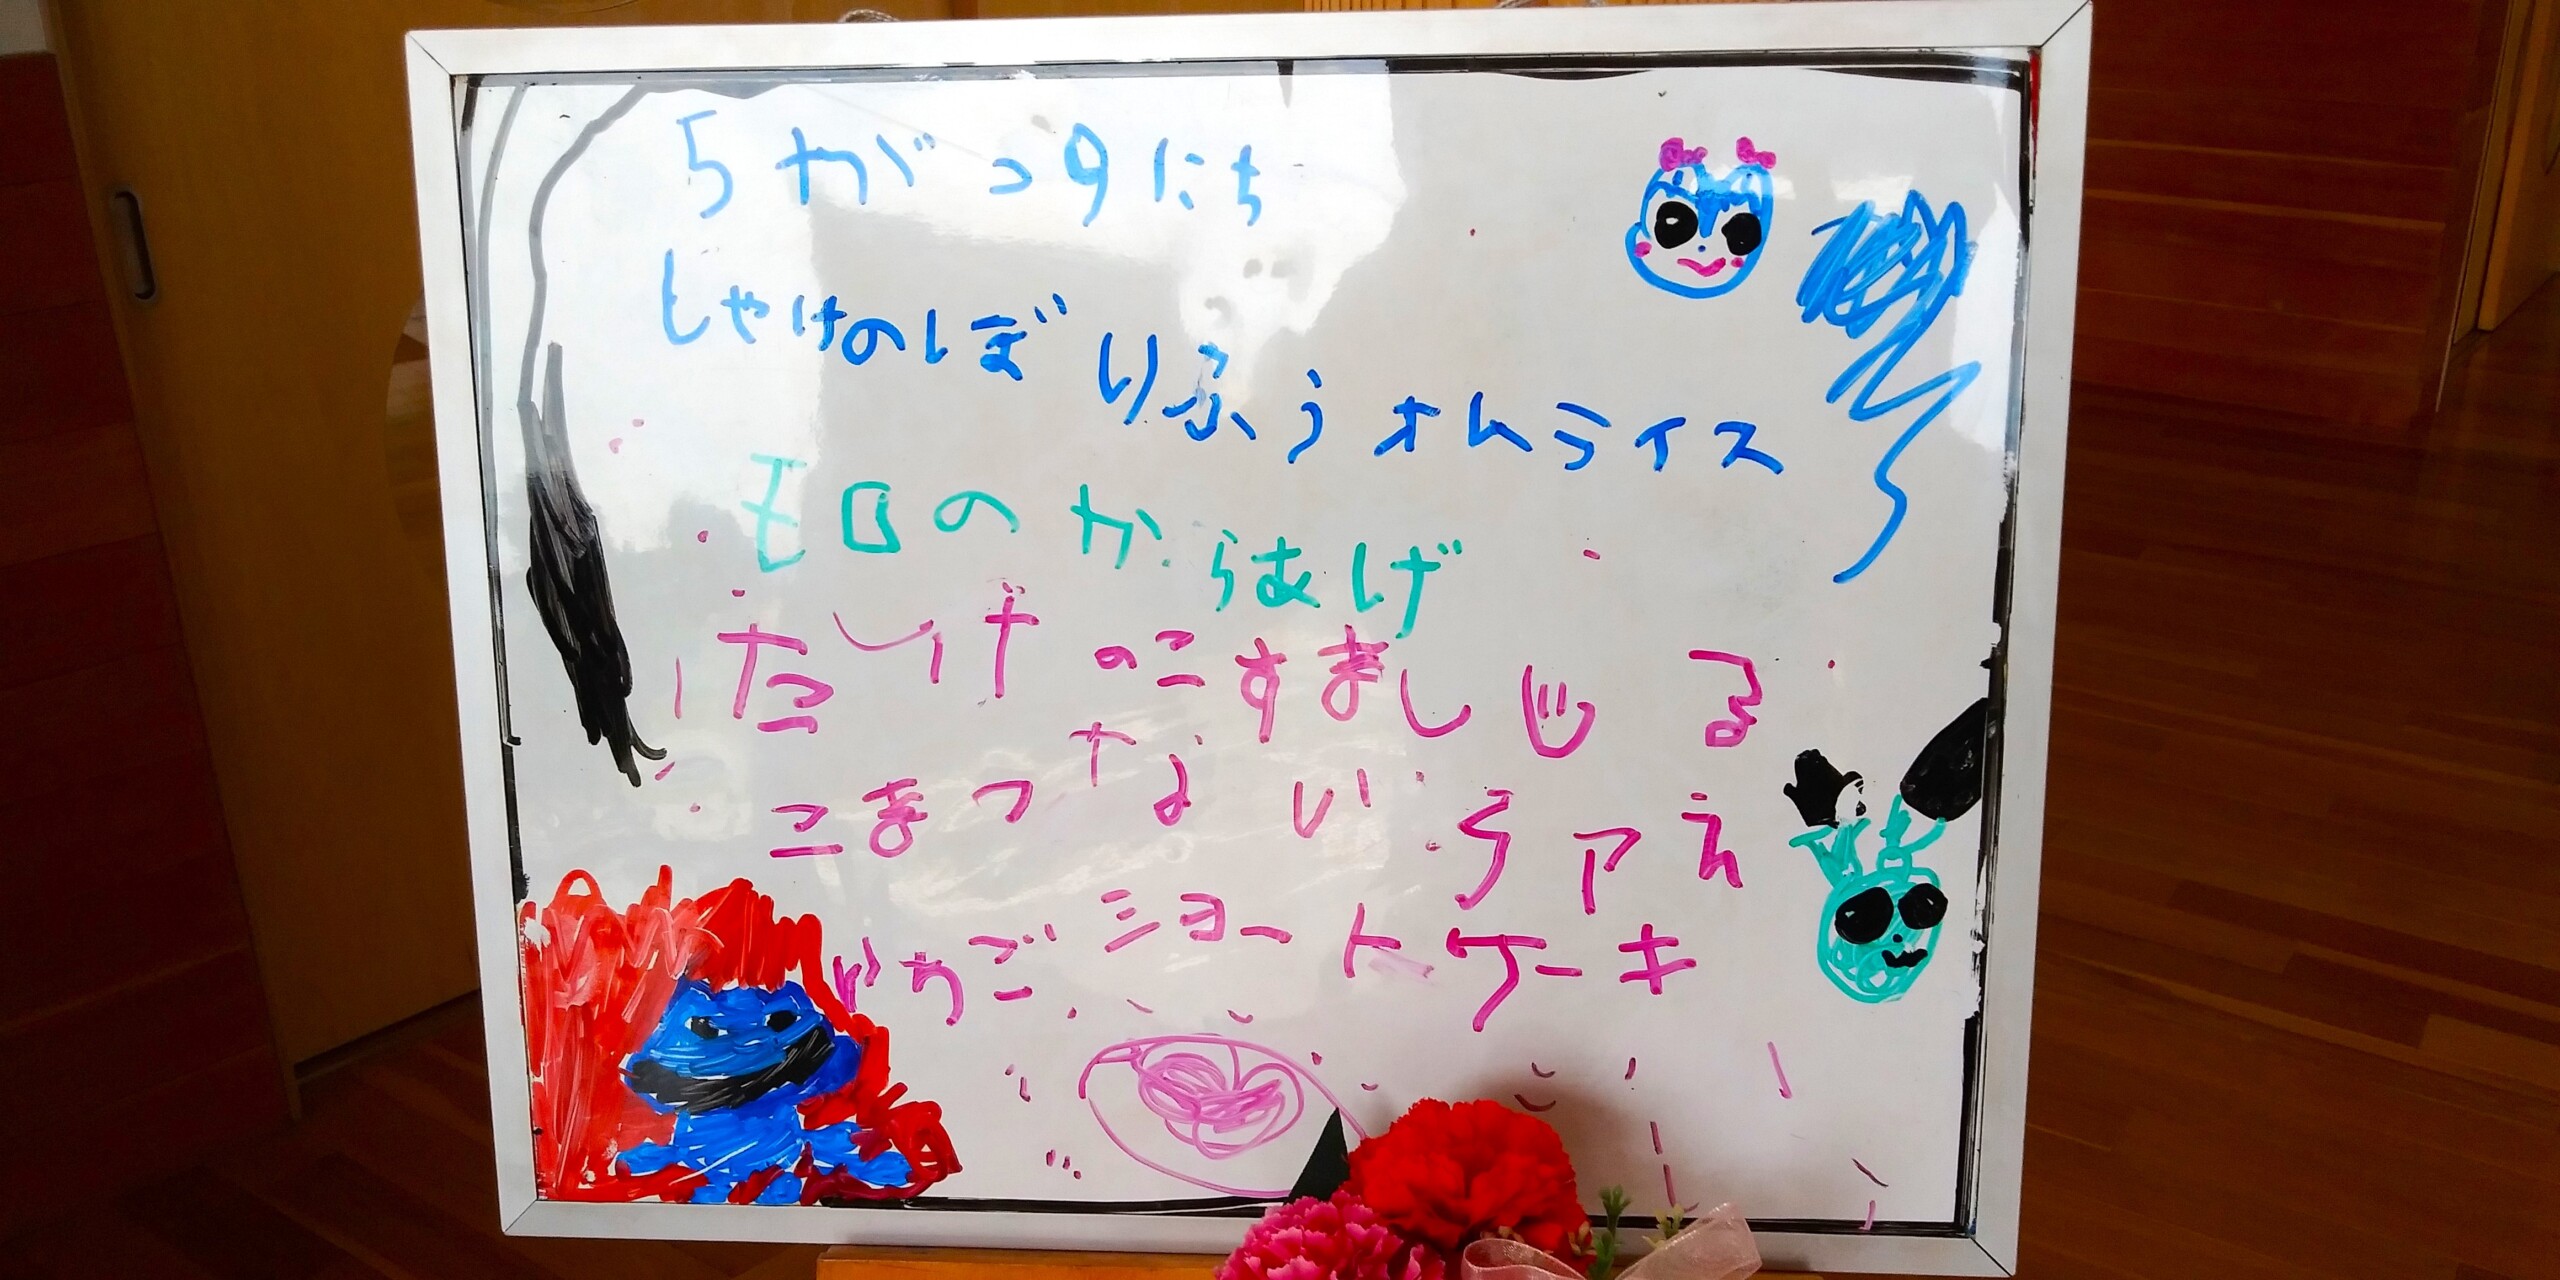 5がつ9にち
しゃけのぼりふうオムライス
モロのからあげ
たけのこすましじる
こまつないちアえ
いちごショートケーキ